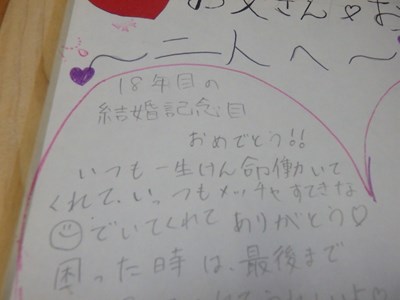 お父さん♡お
～二人へ～
18年目の
結婚記念日
おめでとう!!
いつも一生けん命働いて
くれて、いっつもメッチャすてきな
☺でいてくれてありがとう♡
困った時は、最後まで